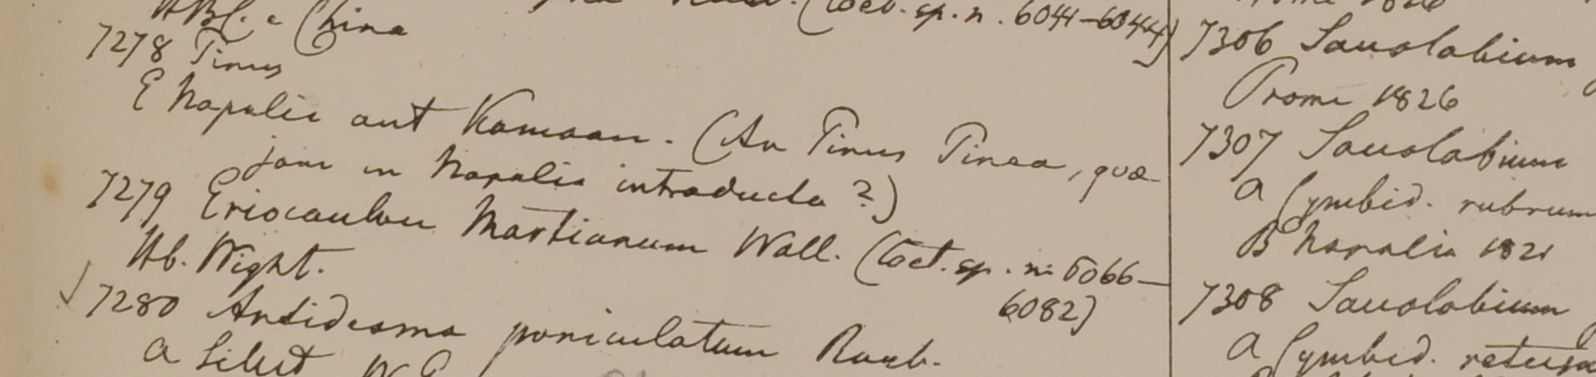 HBC. e China
(Coet. sp. n. 6041-6044)
7278 Pinus
E Napalia aut Kamaon. (An Pinus Pinea, quæ
jam in Napalia introducta?)
7279 Eriocaulon Martianum Wall. (Coet. sp. n. 6066-
6082)
Hb. Wight.
7280 Antidesma paniculatum Roxb.
a Silhet
7306 Saccolabium
Prome 1826
7307 Saccolabium
a Cymbid. rubrum
B Napalia 1821
7308 Saccolabium
a Cymbid. retusa